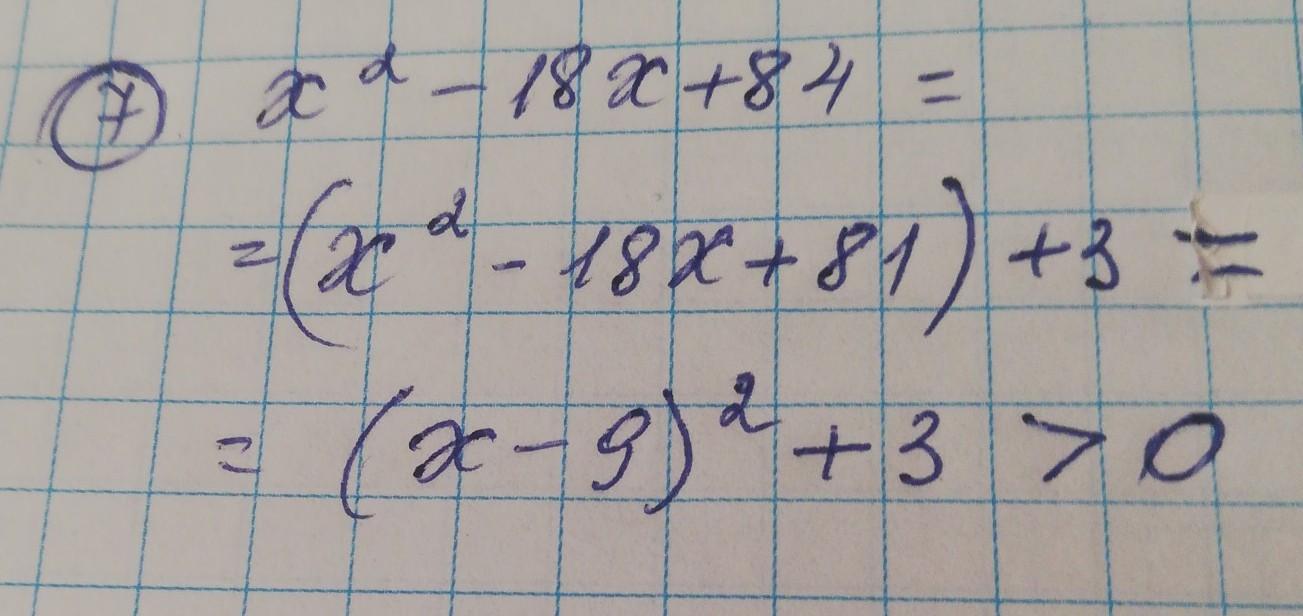 7 x² - 18x + 84 =
= (x² - 18x + 81) + 3 =
= (x - 9)² + 3 > 0